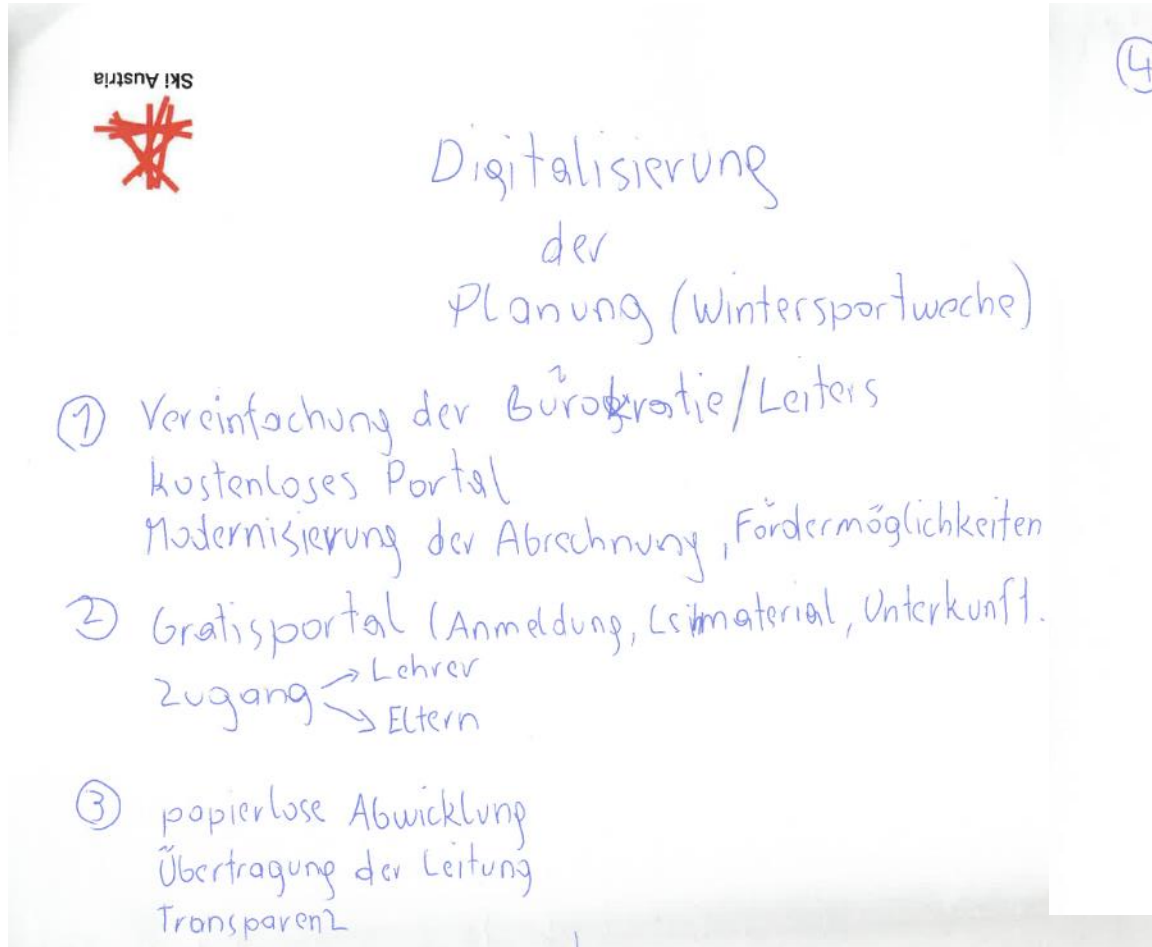 Ski Austria
④
Digitalisierung
der
Planung (Wintersportwoche)
① Vereinfachung der Bürokratie/Leiters
kostenloses Portal
Modernisierung der Abrechnung, Fördermöglichkeiten
② Gratisportal (Anmeldung, Unterkunft.
Zugang → Lehrer
→ Eltern
③ papierlose Abwicklung
Übertragung der Leitung
Transparenz